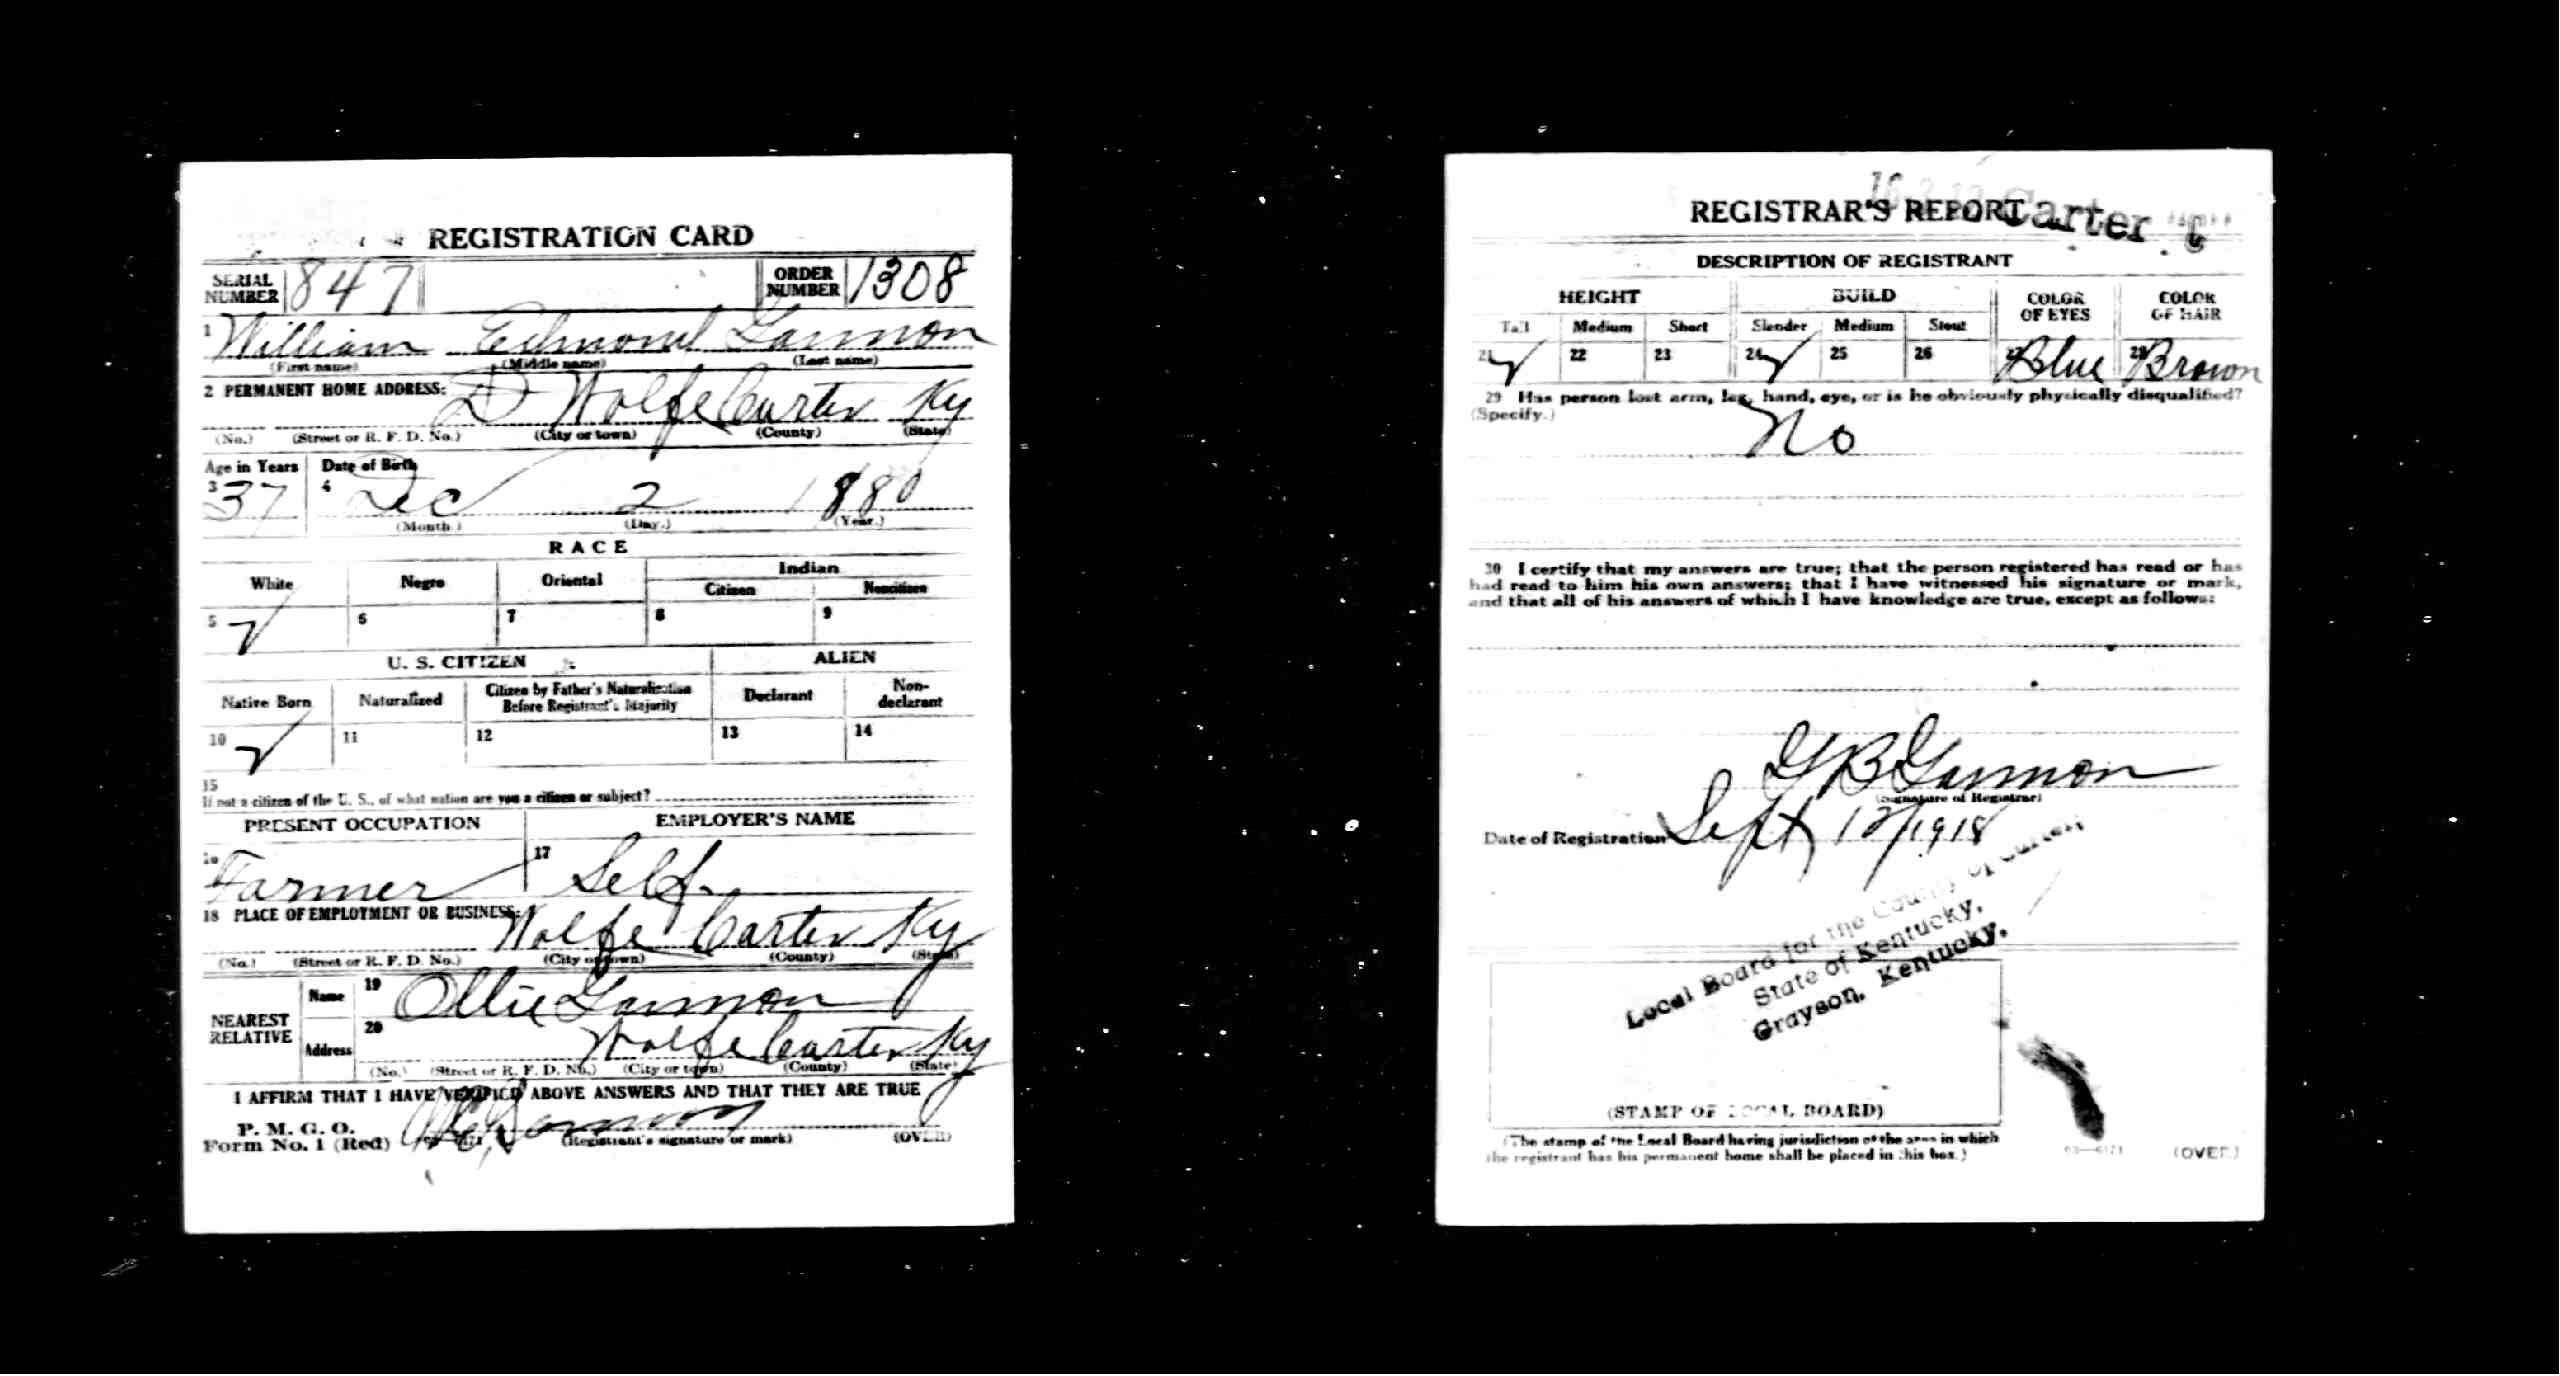 REGISTRATION CARD
SERIAL NUMBER 847 ORDER NUMBER 1308
1 William Edmond Gannon
(First name) (Middle name) (Last name)
2 PERMANENT HOME ADDRESS:
Wolfe Carter Ky
(No.) (Street or R. F. D. No.) (City or town) (County) (State)
Age in Years Date of Birth
3 37 4 Dec 2 1880
(Month.) (Day.) (Year.)
RACE
White Negro Oriental Indian
Citizen Noncitizen
5 6 7 8 9
U. S. CITIZEN ALIEN
Native Born Naturalized Citizen by Father's Naturalization Before Registrant's Majority Declarant Non-declarant
10 11 12 13 14
15
If not a citizen of the U. S., of what nation are you a citizen or subject?
PRESENT OCCUPATION EMPLOYER'S NAME
16 Farmer 17 Self
18 PLACE OF EMPLOYMENT OR BUSINESS:
Wolfe Carter Ky
(No.) (Street or R. F. D. No.) (City or town) (County) (State)
NEAREST RELATIVE
Name 19 Ollie Gannon
Address 20 Wolfe Carter Ky
(No.) (Street or R. F. D. No.) (City or town) (County) (State)
I AFFIRM THAT I HAVE VERIFIED ABOVE ANSWERS AND THAT THEY ARE TRUE
P. M. G. O.
Form No. 1 (Red) Gannon
(Registrant's signature or mark) (OVER)
REGISTRAR'S REPORT
Carter C
DESCRIPTION OF REGISTRANT
HEIGHT BUILD COLOR OF EYES COLOR OF HAIR
Tall Medium Short Slender Medium Stout
21 22 23 24 25 26 27 Blue 28 Brown
29 Has person lost arm, leg, hand, eye, or is he obviously physically disqualified?
(Specify.)
No
30 I certify that my answers are true; that the person registered has read or has
had read to him his own answers; that I have witnessed his signature or mark,
and that all of his answers of which I have knowledge are true, except as follows:
G B Gannon
(Signature of Registrar)
Date of Registration Sept 12/1918
Local Board for the County of Carter
State of Kentucky,
Grayson, Kentucky.
(STAMP OF LOCAL BOARD)
(The stamp of the Local Board having jurisdiction of the area in which
the registrant has his permanent home shall be placed in this box.)
03—6171 (OVER)